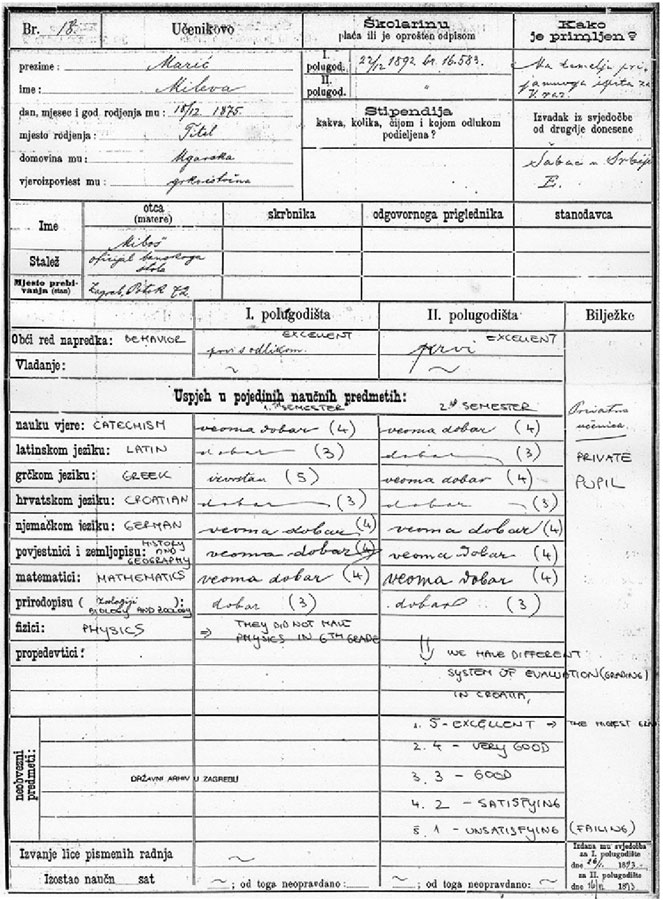 Br. 18. Učenikovo
Školarinu
plaća ili je oprošten odpisom
Kako
je primljen?
prezime: Marić
ime: Mileva
dan, mjesec i god. rodjenja mu: 18/12. 1875.
mjesto rodjenja: Titel
domovina mu: Ugarska
vjeroizpoviest mu: grkoistočna
I.
polugod. 22/12 1892 br. 16.583.
II.
polugod. "
Stipendija
kakva, kolika, čijom i kojom odlukom
podieljena?
Na temelju pri-
jamnoga ispita za
V. raz.
Izvadak iz svjedočbe
od drugdje donesene
Šabac u Srbiji
E.
Ime
otca
(matere)
skrbnika
odgovornoga priglednika
stanodavca
Miloš
Stalež
oficijal banskoga
stola
Mjesto prebi-
vanja (stan)
Zagreb, Potok 72.
I. polugodišta II. polugodišta Bilježke
Obći red napredka: BEHAVIOR prvi s odlikom. EXCELLENT prvi EXCELLENT
Vladanje: ~ ~
Uspjeh u pojedinih naučnih predmetih:
1. ST SEMESTER 2nd SEMESTER
Privatna
učenica.
nauku vjere: CATECHISM veoma dobar (4) veoma dobar (4)
latinskom jeziku: LATIN dobar (3) dobar (3) PRIVATE
grčkom jeziku: GREEK izvrstan (5) veoma dobar (4) PUPIL
hrvatskom jeziku: CROATIAN dobar (3) dobar (3)
njemačkom jeziku: GERMAN veoma dobar (4) veoma dobar (4)
povjestnici i zemljopisu: HISTORY AND GEOGRAPHY veoma dobar (4) veoma dobar (4)
matematici: MATHEMATICS veoma dobar (4) veoma dobar (4)
prirodopisu (Zoologiji): BIOLOGY AND ZOOLOGY dobar (3) dobar (3)
fizici: PHYSICS ⇒ THEY DID NOT HAVE
PHYSICS IN 6TH GRADE
propedevtici:
⇓ WE HAVE DIFFERENT
SYSTEM OF EVALUATION (GRADING)
IN CROATIA,
neobvezni
predmeti:
1. 5 - EXCELLENT ⇒ THE HIGEST GRAD
2. 4 - VERY GOOD
DRŽAVNI ARHIV U ZAGREBU
3. 3 - GOOD
4. 2 - SATISFYING
5. 1 - UNSATISFYING (FAILING)
Izvanje lice pismenih radnja ~
Izostao naučn sat ~; od toga neopravdano: ~ ~; od toga neopravdano: ~
Izdana mu svjedočba
za I. polugodište
dne 26/1. 1893.
za II. polugodište
dne 1893